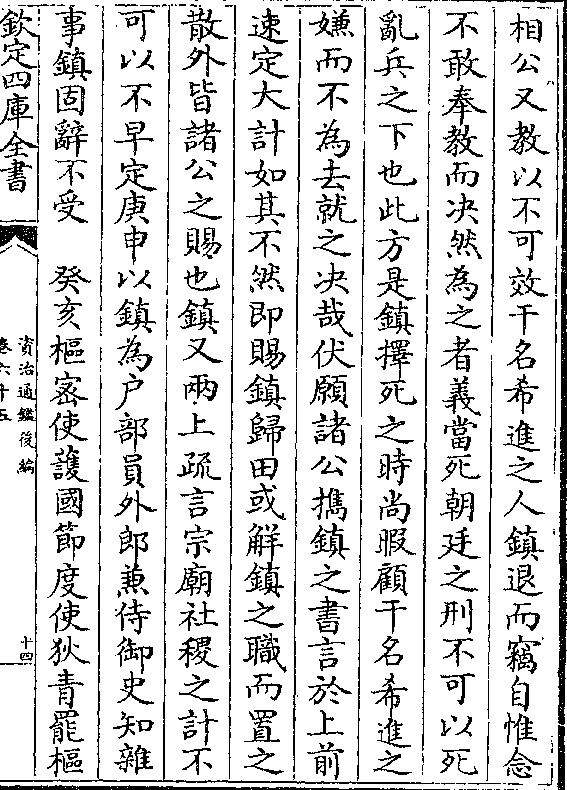 相公又教以不可效干名希進之人鎮退而竊自惟念
不敢奉教而决然為之者義當死朝廷之刑不可以死
亂兵之下也此方是鎮擇死之時尚暇顧干名希進之
嫌而不為去就之决哉伏願諸公擕鎮之書言於上前
速定大計如其不然即賜鎮歸田或解鎮之職而置之
散外皆諸公之賜也鎮又兩上疏言宗廟社稷之計不
可以不早定庚申以鎮為户部員外郎兼侍御史知雜
事鎮固辭不受　癸亥樞宻使護國節度使狄青罷樞
欽定四庫全書
資治通鑑後編
卷六十五
十四